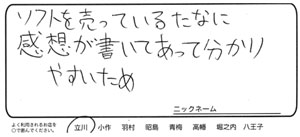 ソフトを売っているたなに
感想が書いてあって分かり
やすいため
ニックネーム
よく利用されるお店を
○で囲んでください。
立川 小作 羽村 昭島 青梅 高幡 堀之内 八王子